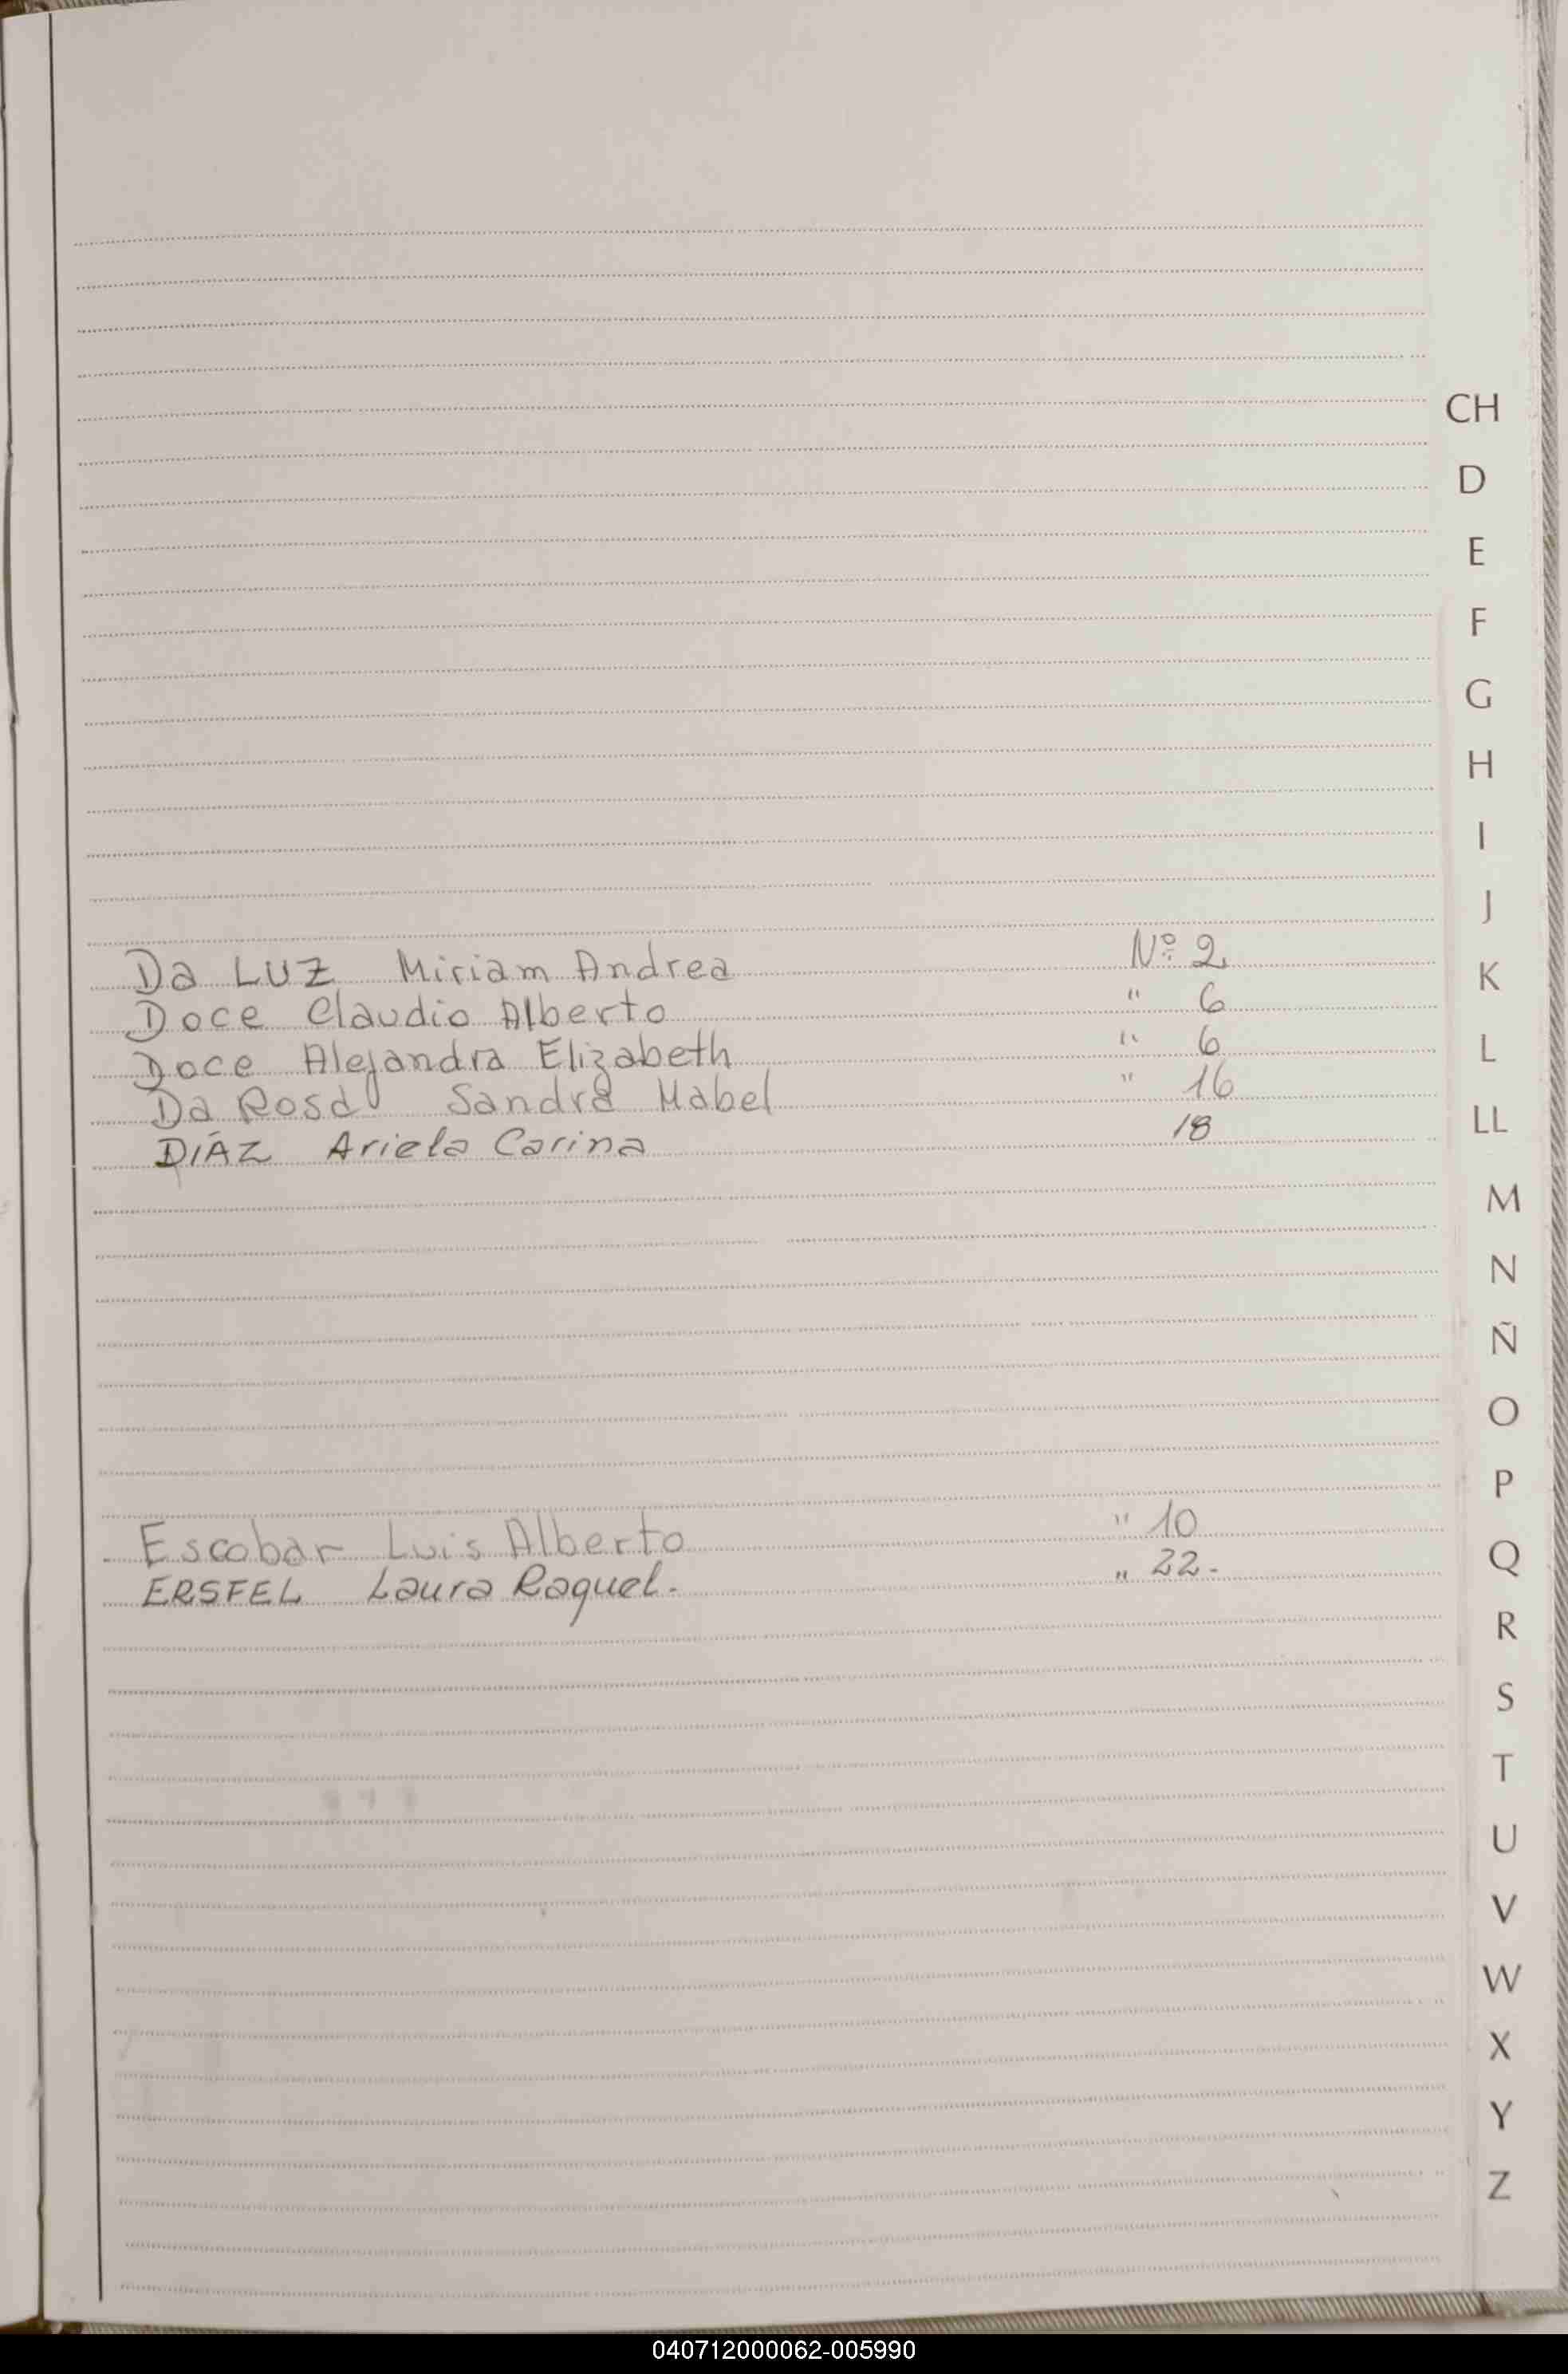 CH
D
E
F
G
H
I
J
Da LUZ Miriam Andrea Nº 2
K
Doce Claudio Alberto " 6
Doce Alejandra Elizabeth " 6
L
Da Rosa Sandra Mabel " 16
DÍAZ Ariela Carina 18
LL
M
N
Ñ
O
P
Escobar Luis Alberto " 10
Q
ERSFEL Laura Raquel. " 22-
R
S
T
U
V
W
X
Y
Z
040712000062-005990